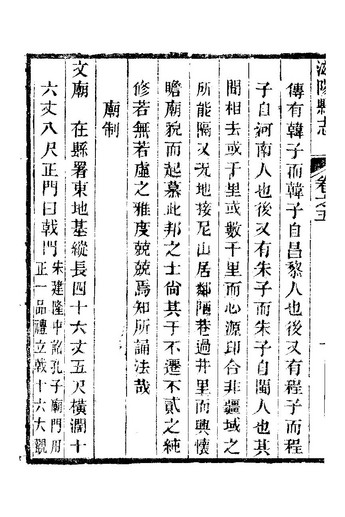 傳有韓子而韓子自昌黎人也後又有程子而程
子自河南人也後又有朱子而朱子自閩人也其
間相去或千里或數千里而心源印合非疆域之
所能隔又況地接尼山居鄰陋巷過井里而興懷
瞻廟貌而起慕此邦之士尙其于不遷不貳之純
修若無若虛之雅度兢兢焉知所誦法哉
廟制
文廟 在縣署東地基縱長四十六丈五尺橫濶十
六丈八尺正門曰戟門 朱建隆中詔孔子廟門用
正一品禮立戟十六大觀